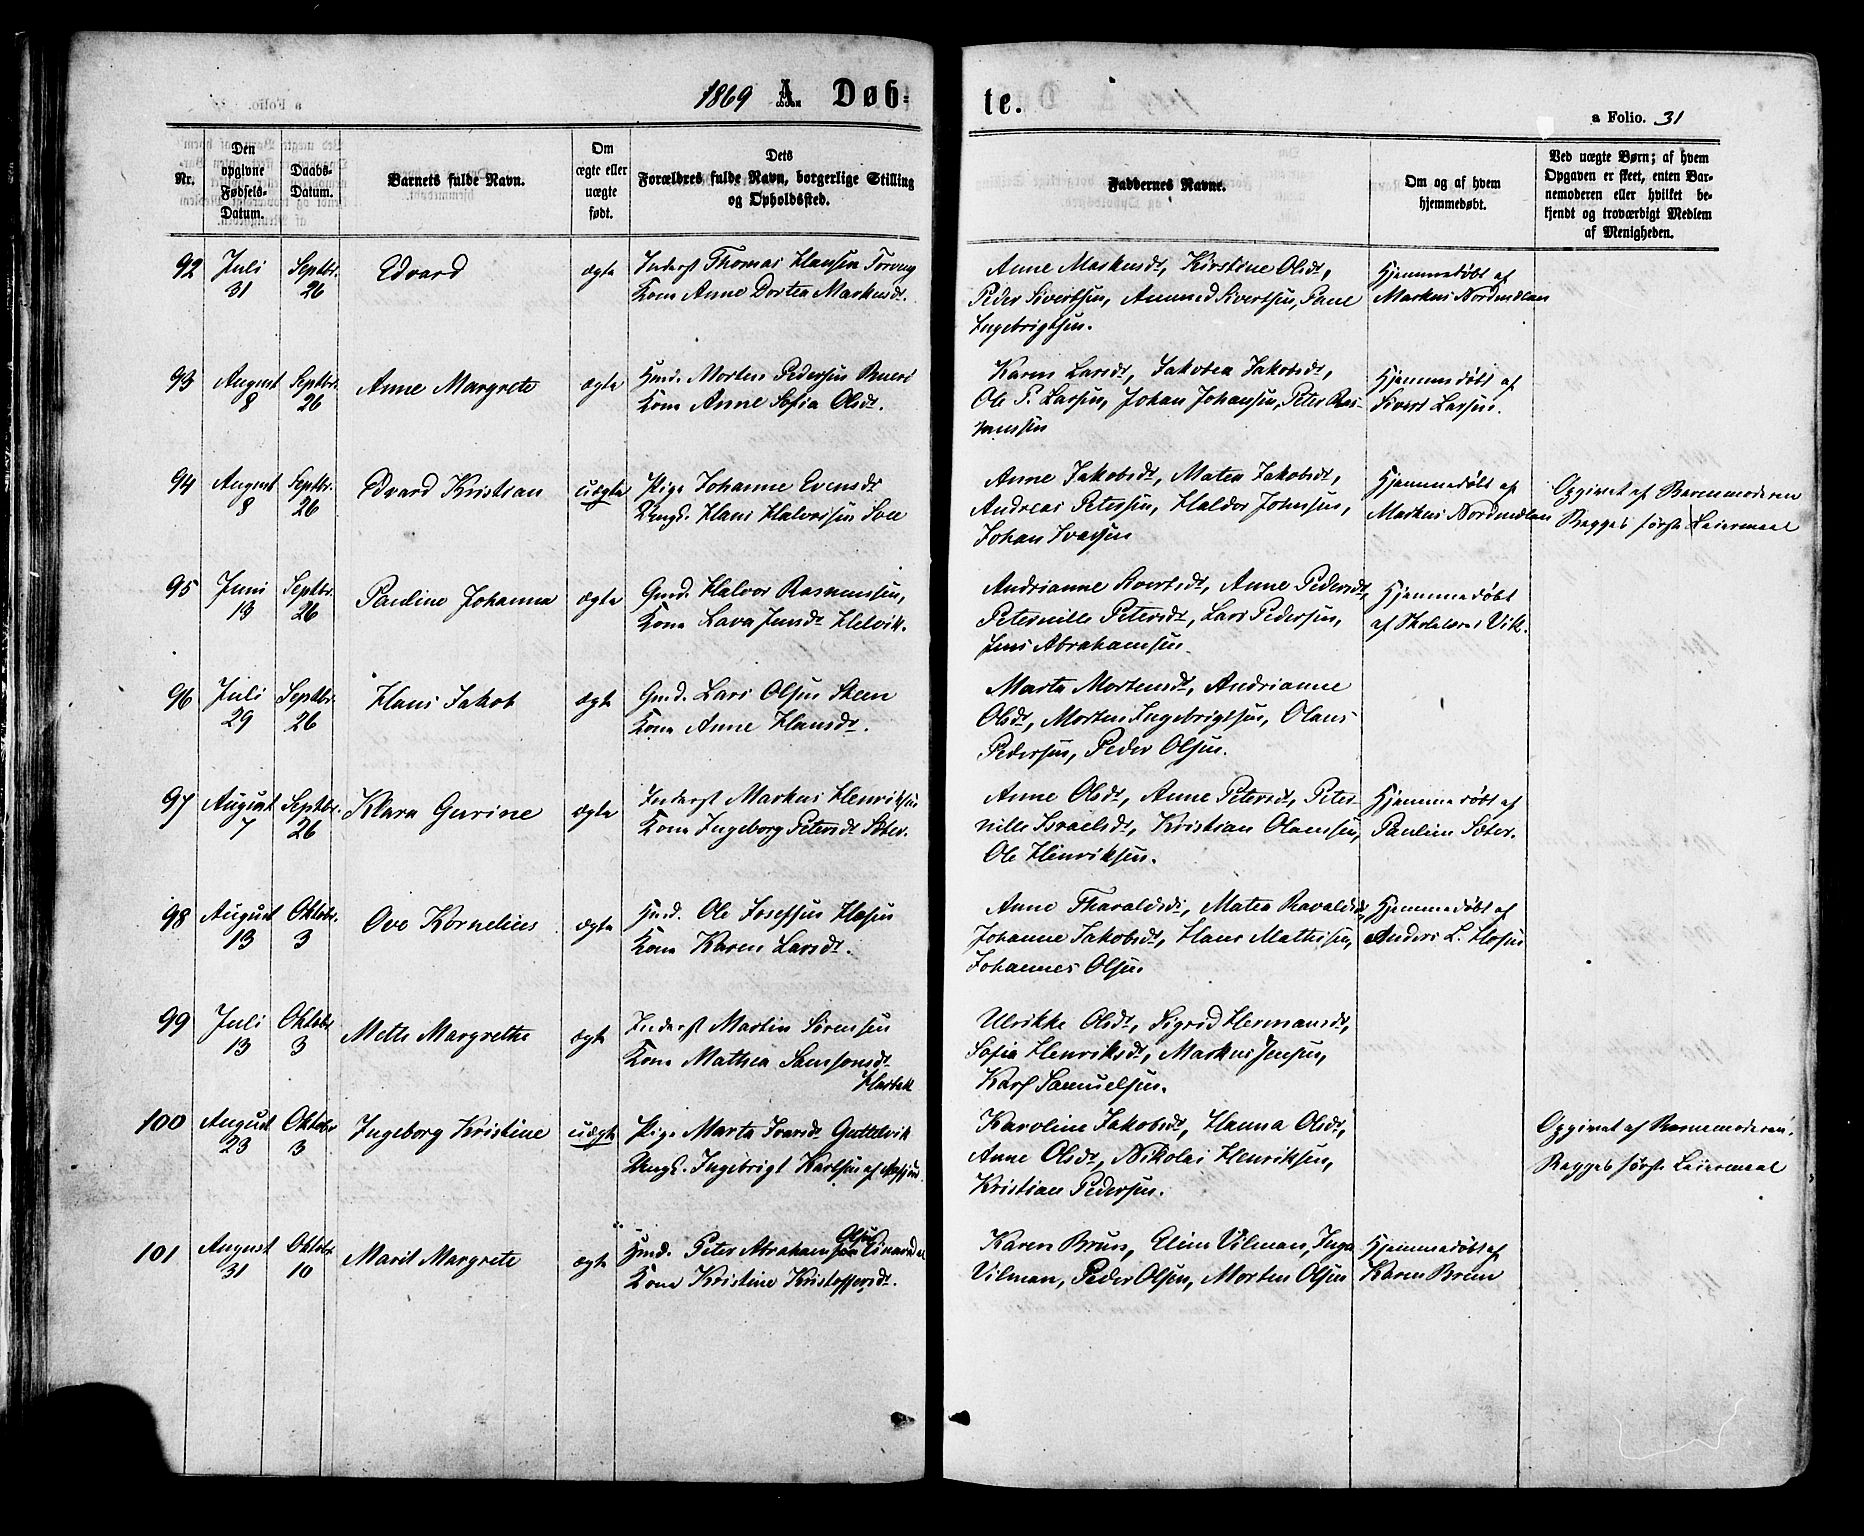 1869 A. Døb-
te.
a Folio. 31
Nr.
Den opgivne Fødsels-Datum.
Daabs-Datum.
Barnets fulde Navn.
Om ægte eller uægte født.
Dets Forældres fulde Navn, borgerlige Stilling og Opholdssted.
Faddernes Navne.
Om og af hvem hjemmedøbt.
Ved uægte Børn; af hvem Opgaven er skeet, enten Barnemoderen eller hvilket bekjendt og troværdigt Medlem af Menigheden.
92 Juli 31 Septbr. 26 Edvard ægte
Inderst Thomas Hansen
Kone Anne Dortea Markusdt.
Anne Markusdt, Kirstine Olsdt,
Peder Sivertsen, Ammed Sivertsen, Paul
Ingebrigtsen.
Hjemmedøbt af
Markus Nordmelan
93 August 8 Septbr. 26 Anne Margrete ægte
Hmd. Morten Pedersen
Kone Anne Sofia Olsdt.
Karen Larsdt, Jakobea Jakobsdt,
Ole P. Larsen, Johan Johansen, Peter Ras-
mussen
Hjemmedøbt af
Sivert Larsen.
94 August 8 Septbr. 26 Edvard Kristian uægte
Pige Johanne Evensdt
Ungk. Hans Halvorsen
Anne Jakobsdt, Matea Jakobsdt,
Andreas Petersen, Haldor Johnsen,
Johan Ivarsen
Hjemmedøbt af
Markus Nordmelan
Opgivet af Barnemoderen
Begges første Leiermaal
95 Juni 13 Septbr. 26 Pauline Johanna ægte
Gmd. Halvor Rasmussen,
Kone Lava Jensdt Helvik.
Andrianne Sivertsdt, Anne Pedersdt,
Peternille Petersdt, Lars Pedersen,
Jens Abrahamsen.
Hjemmedøbt
af Skolelærer Vik.
96 Juli 29 Septbr. 26 Hans Jakob ægte
Gmd. Lars Olsen Skeen
Kone Anne Hansdt.
Marta Mortensdt, Andrianne
Olsdt, Morten Ingebrigtsen, Olaus
Pedersen, Peder Olsen.
97 August 7 Septbr. 26 Klara Gurine ægte
Inderst Markus Henriksen
Kone Ingeborg Petersdt Sæter.
Anne Olsdt, Anne Petersdt, Peter-
nille Israelsdt, Kristian Olamsen,
Ole Henriksen.
Hjemmedøbt af
Paulina Sæter.
98 August 13 Oktobr. 3 Ove Kornelius ægte
Hmd. Ole Josefsen
Kone Karen Larsdt.
Anne Tharaldsdt, Matea Ravaldsdt
Johanne Jakobsdt, Hans Mathisen,
Johannes Olsen.
Hjemmedøbt af
Anders L.
99 Juli 13 Oktobr. 3 Mette Margrethe ægte
Inderst Martin Sørensen
Kone Mathea Samsonsdt.
Ulrikke Olsdt, Sigrid Hermansdt,
Sofia Henriksdt, Markus Jensen,
Karl Samuelsen.
100 August 23 Oktobr 3 Ingeborg Kristine uægte
Pige Marta Ivarsdt Guttelvik
Ungk. Ingebrigt Karlsen af
Karoline Jakobsdt, Hanna Olsdt,
Anne Olsdt, Nikolai Henriksen,
Kristian Pedersen.
Opgivet af Barnemoderen.
Begges første Leiermaal
101 August 31 Oktobr 10 Marit Margrete ægte
Hmd. Peter Abraham Olsen
Kone Kristine Kristoffersdt.
Karen Brun, Eline Vilman, Inga
Vilman, Peder Olsen, Morten Olsen
Hjemmedøbt af
Karen Brun